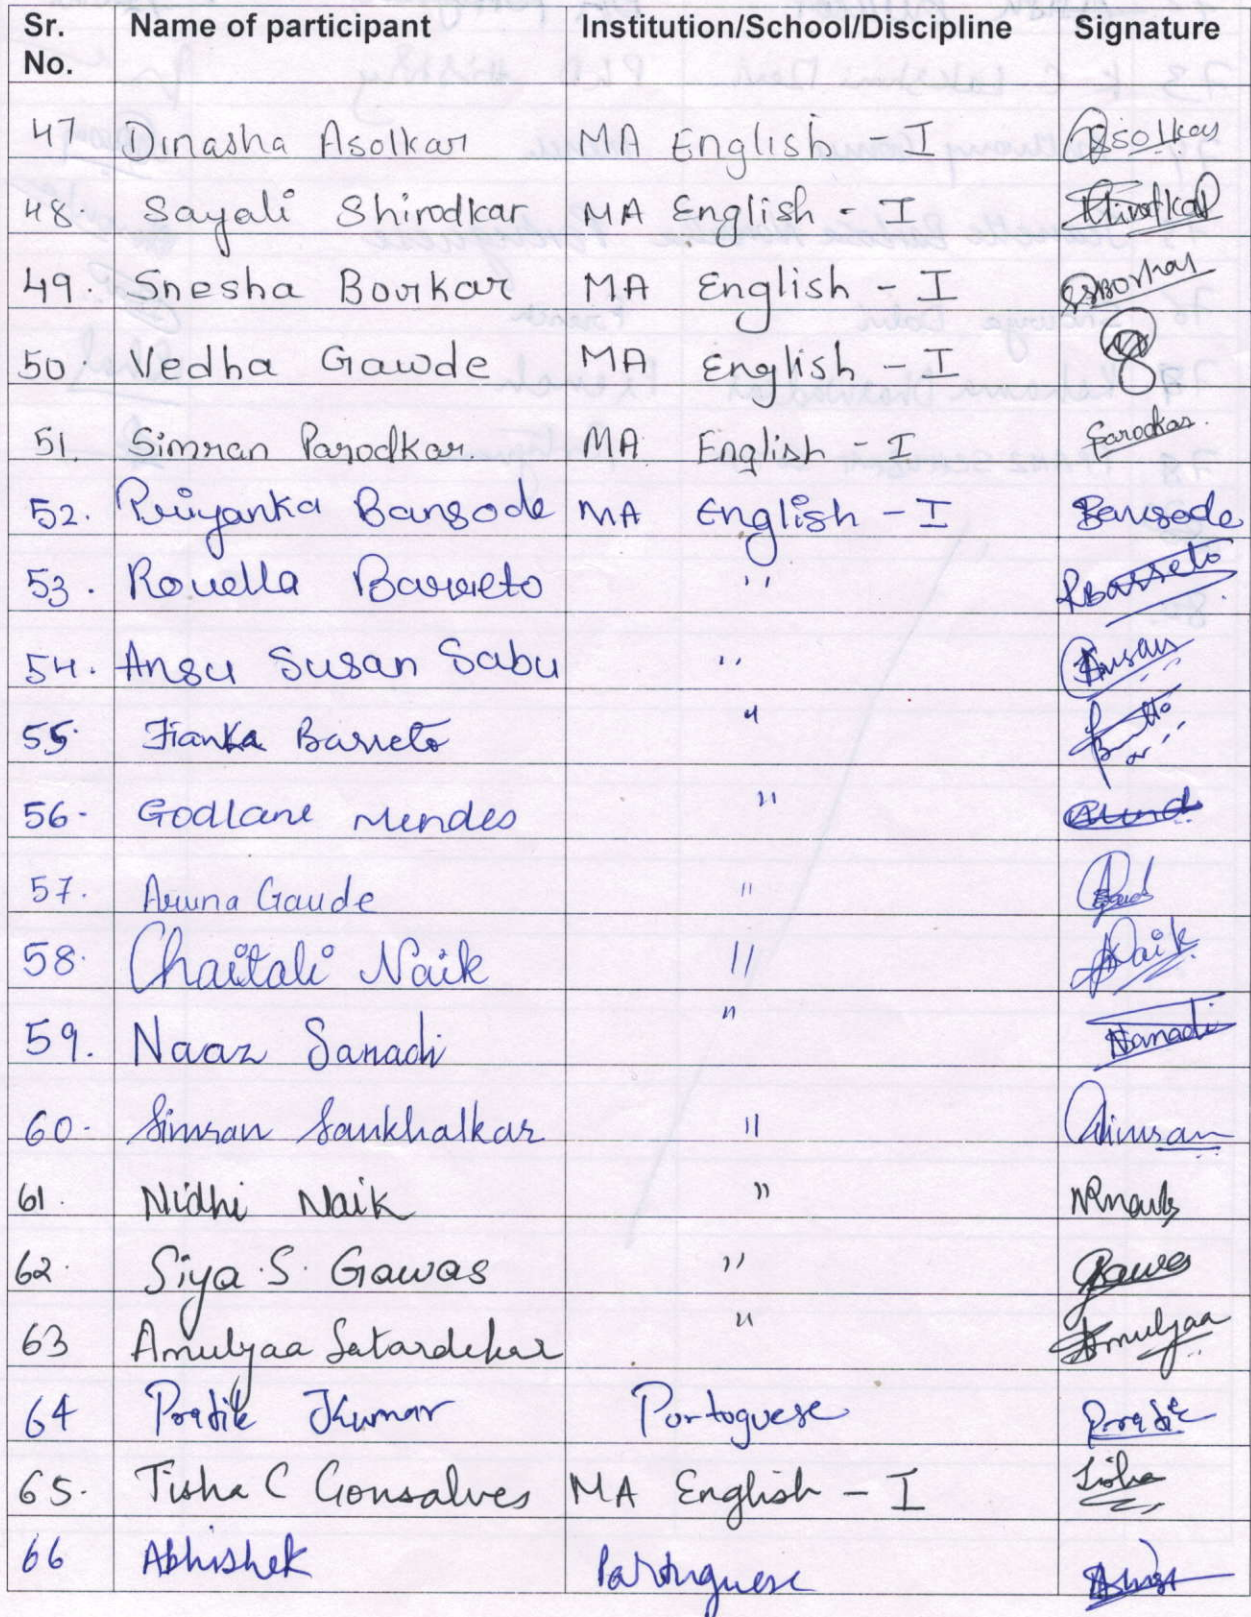 Sr. No. Name of participant Institution/School/Discipline Signature
47 Dinasha Asolkar MA English - I Asolkar
48. Sayali Shirodkar MA English - I Shirodkar
49. Snesha Borkar MA English - I SBorkar
50 Vedha Gawde MA English - I
51. Simran Parodkar. MA English - I Parodkar.
52. Priyanka Bansode MA English - I Bansode
53. Rouella Barreto " RBarreto
54. Ansu Susan Sabu " Ansu
55. Fianka Barreto "
56. Godlane Mendes "
57. Aruna Gaude "
58. Chaitali Naik " Naik
59. Naaz Sanadi " Sanadi
60. Simran Sankhalkar " Simran
61. Nidhi Naik "
62. Siya . S. Gawas " Gawas
63 Amulyaa Satardekar " Amulyaa
64 Pratik Kumar Portoguese Pratik
65. Tisha C Gonsalves MA English - I Tisha
66 Abhishek Portuguese